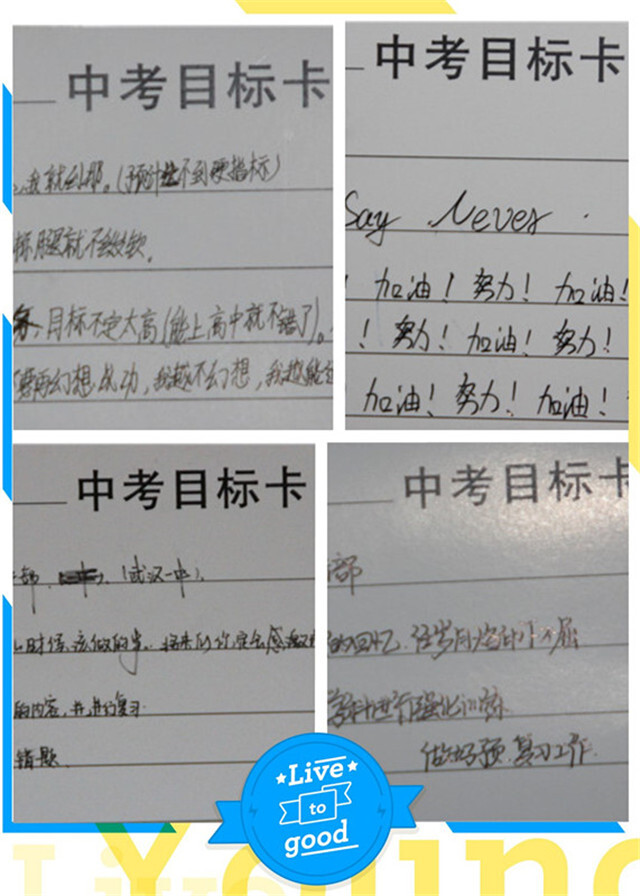 中考目标卡
我就到那。(预计达不到硬指标)
标腿就不缴款
目标不定太高(能上高中就不错了)。
要再幻想成功,我越不幻想,我越能
中考目标卡
Say Never.
! 加油! 努力! 加油!
! 努力! 加油! 努力!
加油! 努力! 加油!
中考目标卡
部. (武汉一中).
时候该做的事. 将来的你定会感激
的内容,并进行复习.
错题.
中考目标卡
部
的回忆. 往岁月
进行强化训练
做好预.复习工作.
Live
to
good
Young
Live